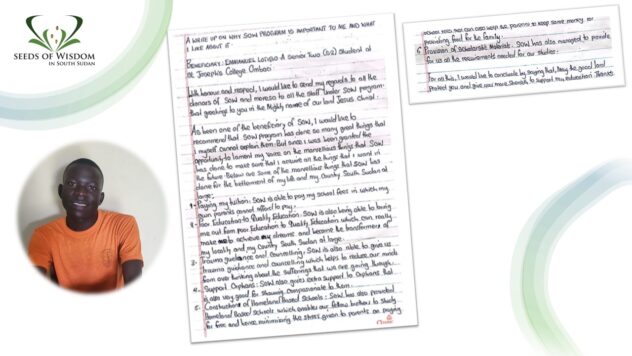 SEEDS OF WISDOM
IN SOUTH SUDAN
A WRITE UP ON WHY SOW PROGRAM IS IMPORTANT TO ME AND WHAT
I LIKE ABOUT IT.
BENEFICIARY: EMMANUEL A SENIOR TWO (S2) Student of
St. Joseph's College Ombaci
With honour and respect, I would like to send my regards to all the
donors of SOW and moreso to all the staff under SOW program.
that greetings to you in the Mighty name of our lord Jesus Christ.
As been one of the beneficiary of SOW, I would like to
recommend that SOW program has done so many great things that
I myself cannot explain them. But since I was been granted the
opportunity to my voice on the marvellous things that SOW
has done to make sure that I acquire all the things that I want in
the future. Below are some of the marvellous things that SOW has
done for the betterment of my life and my country South Sudan at
large;
1- Paying my tuition; SOW is able to pay my school fees in which my
own parents cannot afford to pay.
2- Poor Education to Quality Education. SOW is also being able to bring
me out from poor Education to Quality Education which can really
make me to achieve my dreams and become the transformer of
my locality and my Country South Sudan at large.
3- Trauma guidance and Counselling. SOW is also able to give us
trauma guidance and counselling which helps to reduce our minds
from over thinking about the sufferings that we are going through.
4- Support Orphans: SOW also gives extra support to Orphans that
is also very good for showing Compassionate to them.
5- Constructions of Homeland Based Schools: SOW has also provided
Homeland Based Schools which enables our fellow brothers to study
for free and hence minimizing the stress given to parents on paying
school fees that can also help the parents to keep some money for
providing food for the family.
6 Provision of Scholarstic Materials. SOW has also managed to provide
for us all the requirements needed for our studies.
For all this, I would like to conclude by saying that, may the good lord
protect you and give you more strength to support my education. Thanks